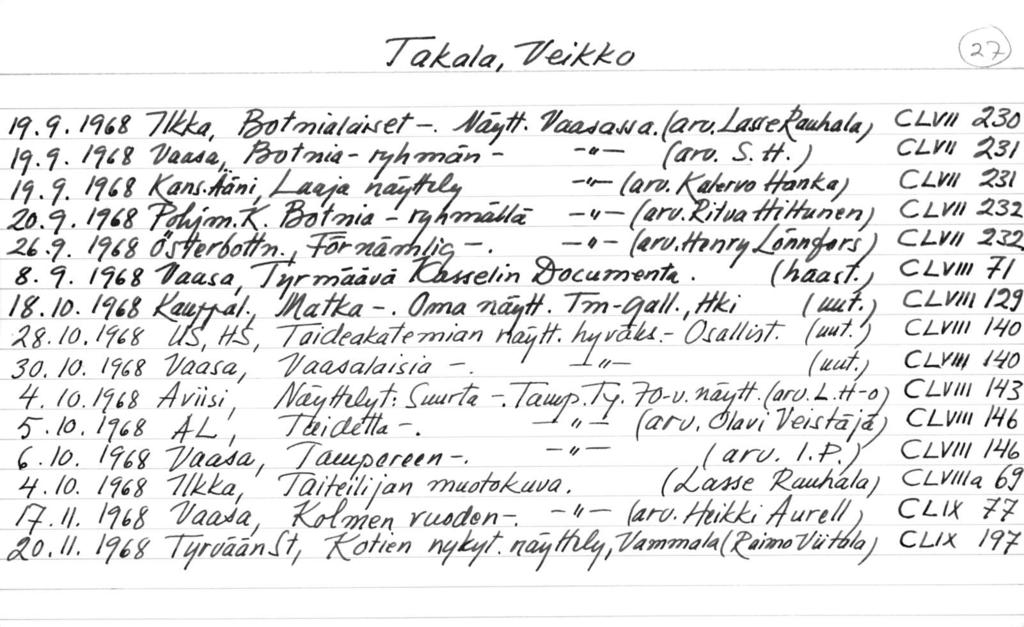 Takala, Veikko 27
19.9.1968 Ilkka, Botnialaiset –. Näytt. Vaasassa. (arv. Lasse Rauhala) CLVII 230
19.9.1968 Vaasa, Botnia-ryhmän – –"– (arv. S.H.) CLVII 231
19.9.1968 Kans.Ääni, Laaja näyttely –"– (arv. Kalervo Hanka) CLVII 231
20.9.1968 Pohjm.K. Botnia-ryhmällä –"– (arv. Ritva Hiltunen) CLVII 232
26.9.1968 Österbottn., Förnämlig –. –"– (arv. Henry Lönnfors) CLVII 232
8.9.1968 Vaasa, Tyrmäävä Kasselin Documenta. (haast.) CLVIII 71
18.10.1968 Kauppal., Matka –. Oma näytt. Tm-gall., Hki (uut.) CLVIII 129
28.10.1968 US, HS, Taideakatemian näytt. hyväks.- Osallist. (uut.) CLVIII 140
30.10.1968 Vaasa, Vaasalaisia –. –"– (uut.) CLVIII 140
4.10.1968 Aviisi, Näyttelyt: Suurta –. Tamp.Ty. 70-v. näytt. (arv. L.H-o) CLVIII 143
5.10.1968 AL, Taidetta –. –"– (arv. Olavi Veistäjä) CLVIII 146
6.10. 1968 Vaasa, Tampereen –. –"– (arv. I.P.) CLVIII 146
4.10. 1968 Ilkka, Taiteilijan muotokuva. (Lasse Rauhala) CLVIIIa 69
17.11. 1968 Vaasa, Kolmen vuoden –. –"– (arv. Heikki Aurell) CLIX 77
20.11. 1968 TyrväänSt, Kotien nykyt. näyttely, Vammala (Raimo Viitala) CLIX 197